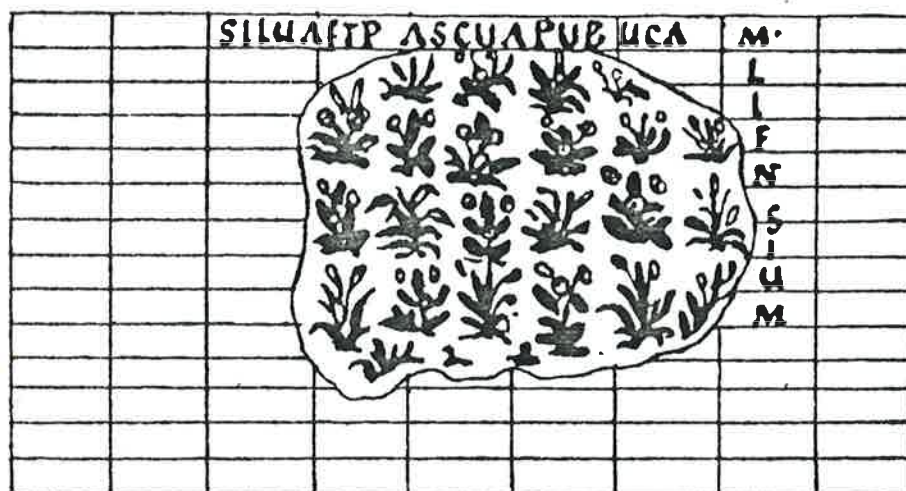 SILUAFTP ASCUAPUB UCA M·
LIFNSIUM